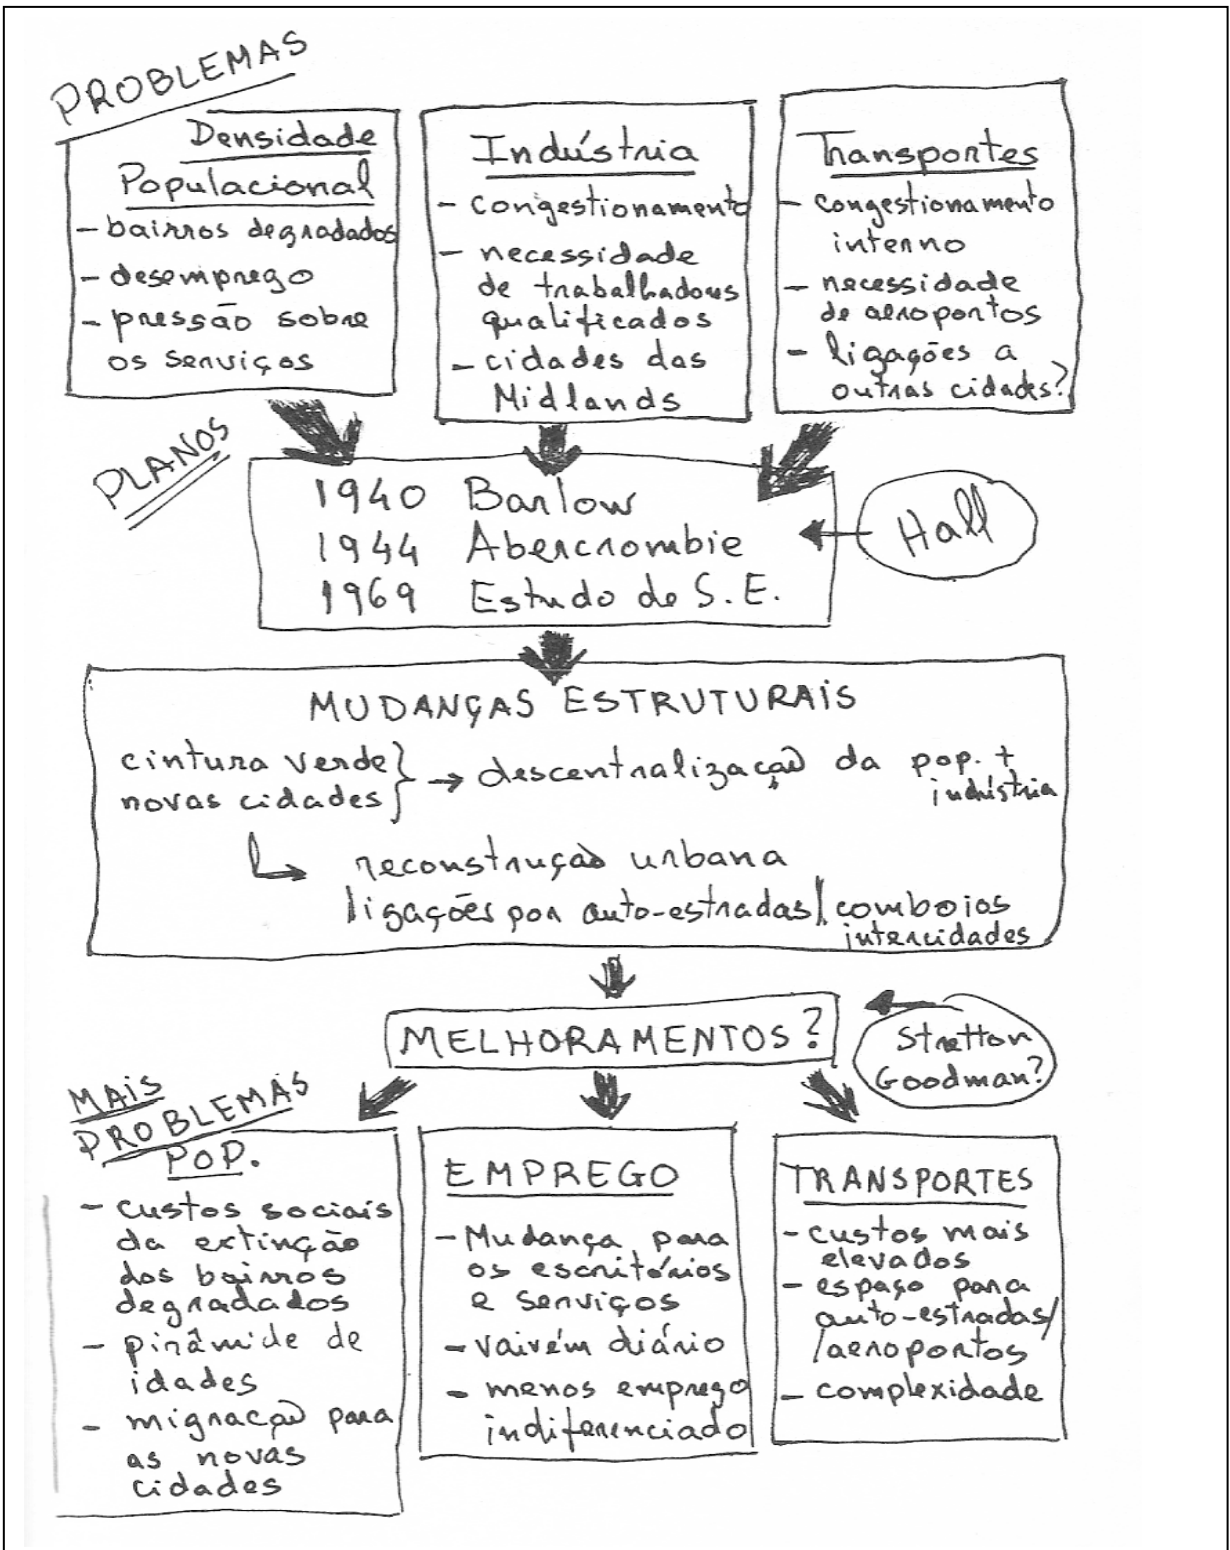 PROBLEMAS
Densidade
Populacional
- bairros degradados
- desemprego
- pressão sobre
os serviços
Indústria
- congestionamento
- necessidade
de trabalhadores
qualificados
- cidades das
Midlands
Transportes
- congestionamento
interno
- necessidade
de aeroportos
- ligações a
outras cidades?
PLANOS
1940 Barlow
1944 Abercrombie
1969 Estudo do S.E.
Hall
MUDANÇAS ESTRUTURAIS
cintura verde } → descentralização da pop. +
novas cidades } indústria
↳ reconstrução urbana
ligações por auto-estradas/comboios
intercidades
MELHORAMENTOS?
Stretton
Goodman?
MAIS
PROBLEMAS
POP.
- custos sociais
da extinção
dos bairros
degradados
- pirâmide de
idades
- migração para
as novas
cidades
EMPREGO
- Mudança para
os escritórios
e serviços
- vaivém diário
- menos emprego
indiferenciado
TRANSPORTES
- custos mais
elevados
- espaço para
auto-estradas/
/aeroportos
- complexidade